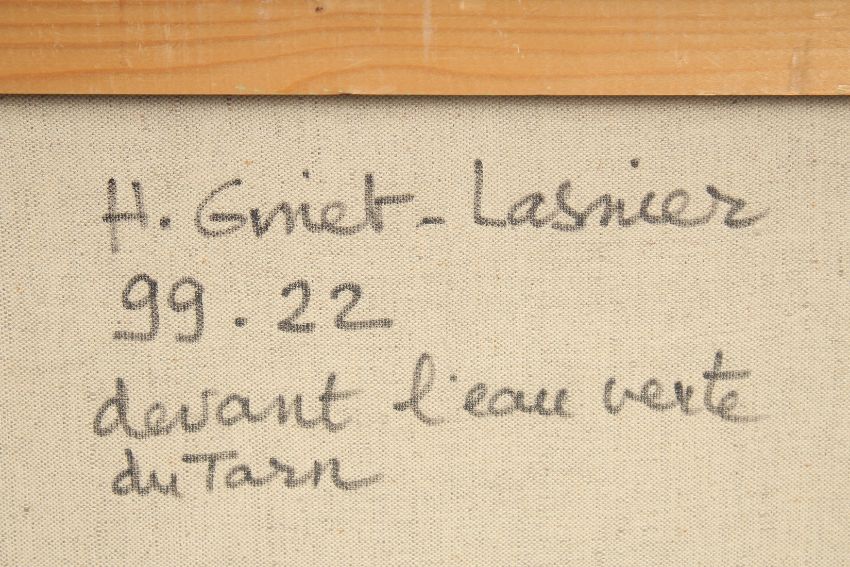 H. Gniet-Lasnier
99.22
devant l'eau verte
du Tarn